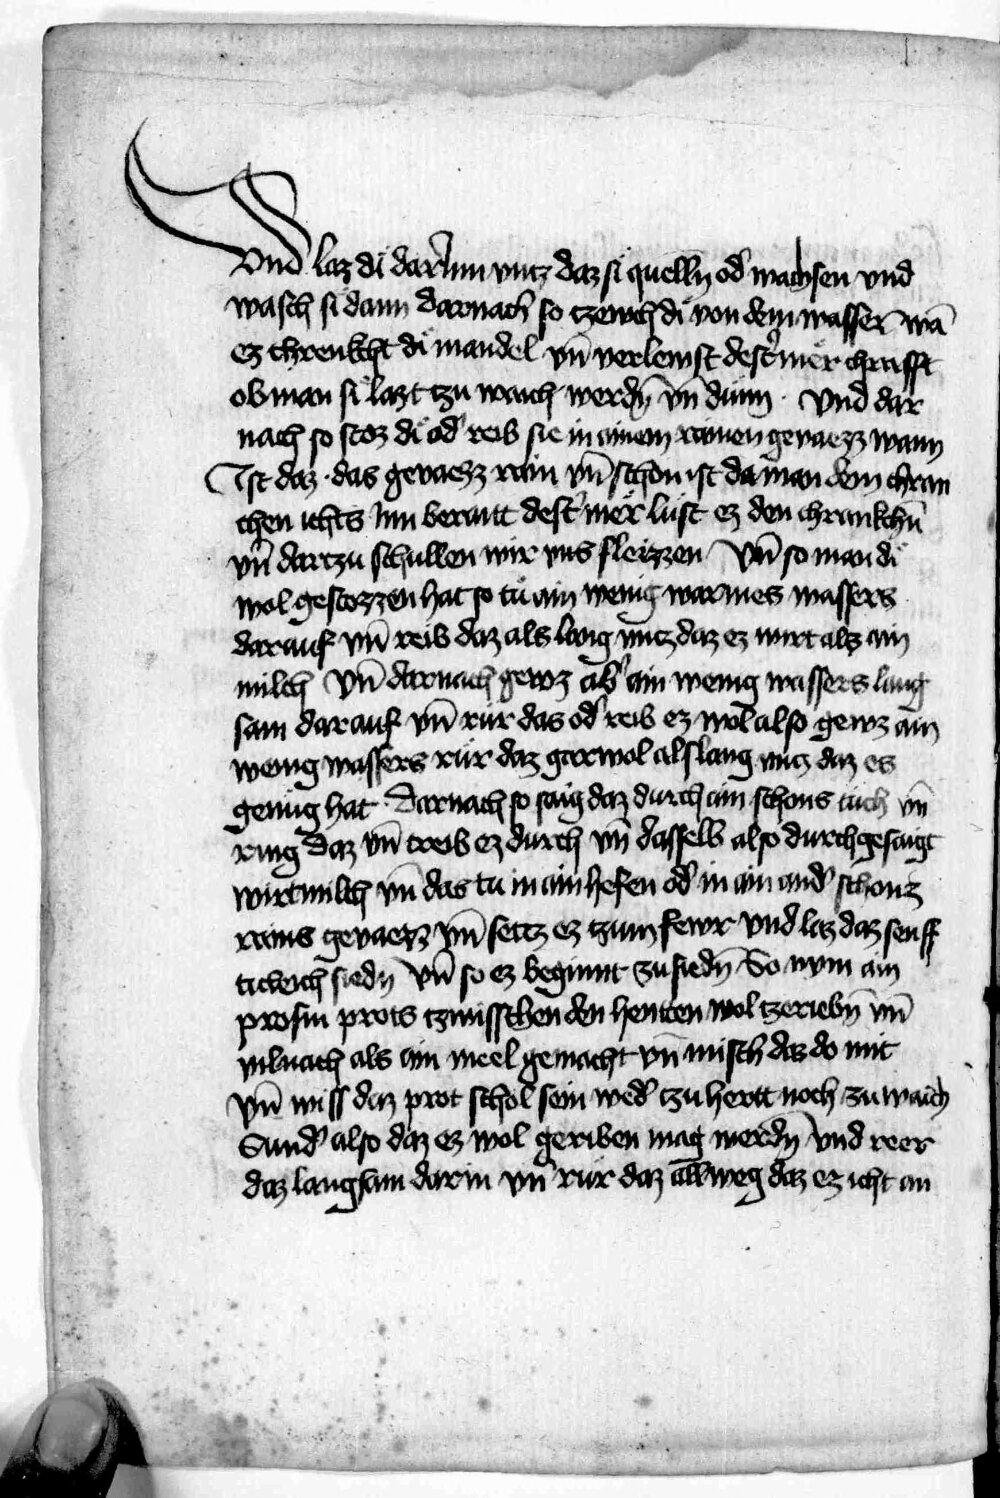 Vnd laz di darinn vntz daz si quelln̄ od' wachsen vnd
wasch si dann darnach so tzewch di von dem wasser wā
ez chrenkcht di mandel vn̄ verlewst dest' mer chrafft
ob man si lazt tzu waich werdn̄ vn̄ dünn · Vnd dar
nach so stoz di od' reib sie in ainem rainen gevaezz wann
Ist daz · das gevaezz rain vn̄ schon ist da man dem chran
chen ichts Inn berautt dest' mer lust ez den chrankchn̄
vn̄ dartzu schullen wir vns fleizzen Vn̄ so man di
wol gestozzen hat so tu ain wenig warmes wassers
darauf vn̄ reib daz als lang vntz daz ez wirt als ain
milch Vn̄ darnach gewz ab' ain wenig wassers lang
sam darauf vn̄ rür das od' reib ez wol also gewz ain
wenig wassers rür daz gar wol als lang vntz daz es
genug hat · Darnach so saig daz durch ain schons tuch vn̄
ring daz vn̄ treib ez durch vn̄ dasselb also durchgesaigt
wirt milch vn̄ das tu in ain hefen od' in ain and' schonz
rains gevaezz vn̄ settz ez tzum fewr vnd laz daz senff
ticleich siedn̄ Vn̄ so ez beginnt zu siedn̄ So nym ain
prosm prots tzwisschen den henten wol tzeriebn̄ vn̄
vilnach als ain meel gemacht vn̄ misch daz do mit
Vn̄ wiss daz prot schol sein wed' tzu hertt noch zu waich
Sund' also daz ez wol geriben mag werdn̄ Vnd reer
daz langsam darin vn̄ rür daz allweg daz ez icht an